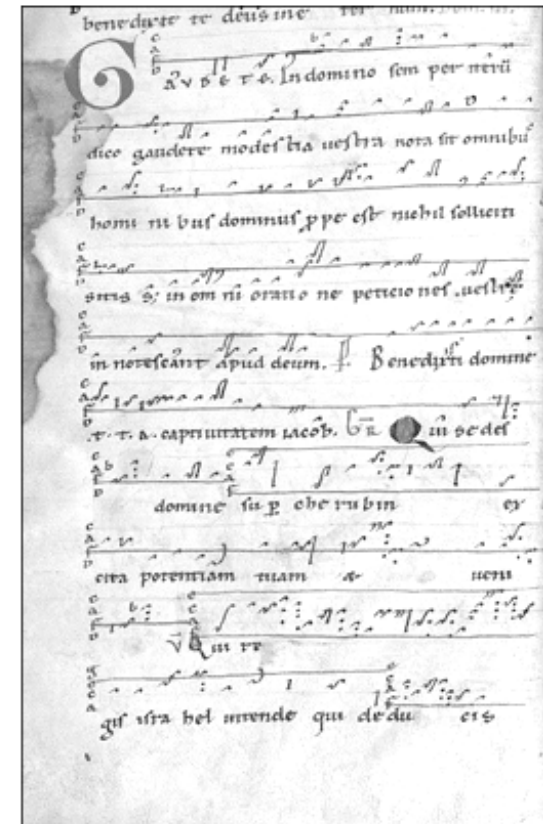 benedicite te deus me
GAUDETE. In domino sem per iterū
dico gaudete modestia uestra nota sit omnibus
homi ni bus dominus ꝓpe est nichil solliciti
sitis s; in om ni oratio ne peticiones uestre
in notescant apud deum. P. Benedixisti domine
.t. t. a. captiuitatem iacob. GR Qui sedes
domine su ꝑ che rubin ex
cita potentiam tuam & ueni
V Qui re
gis isra hel intende qui dedu cis